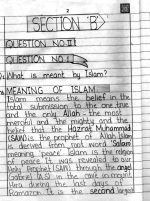 2
SECTION 'B'
QUESTION NO.II
QUESTION NO.1
What is meant by Islam?
MEANING OF ISLAM
Islam means the belief in the
total submission to the one true
and the only Allah - the most
merciful and the mighty and the
belief that the Hazrat Muhammad
(SAW) is the prophet of Allah. Islam
is derived from root word 'Salam'
meaning 'peace'. Islam is the religion
of peace. It was revealed to our
Holy Prophet (SAW) through the angel
Gabriel (A.S) in the cave
Hira during the last days of
Ramazan. It is the second largest